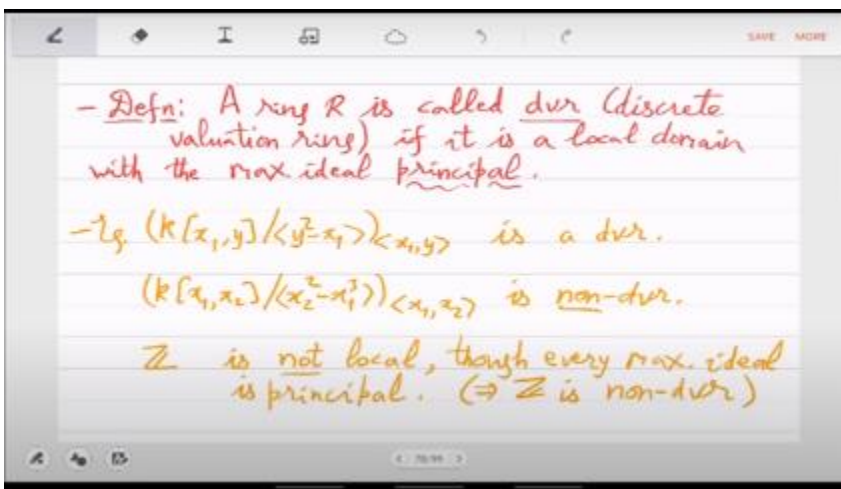 SAVE MORE
- Defn: A ring R is called dvr (discrete
valuation ring) if it is a local domain
with the max ideal principal.
- Eg. (k[x₁,y]/<y²-x₁>)<x₁,y> is a dvr.
(k[x₁,x₂]/<x₂²-x₁³>)<x₁,x₂> is non-dvr.
ℤ is not local, though every max. ideal
is principal. (⇒ ℤ is non-dvr)